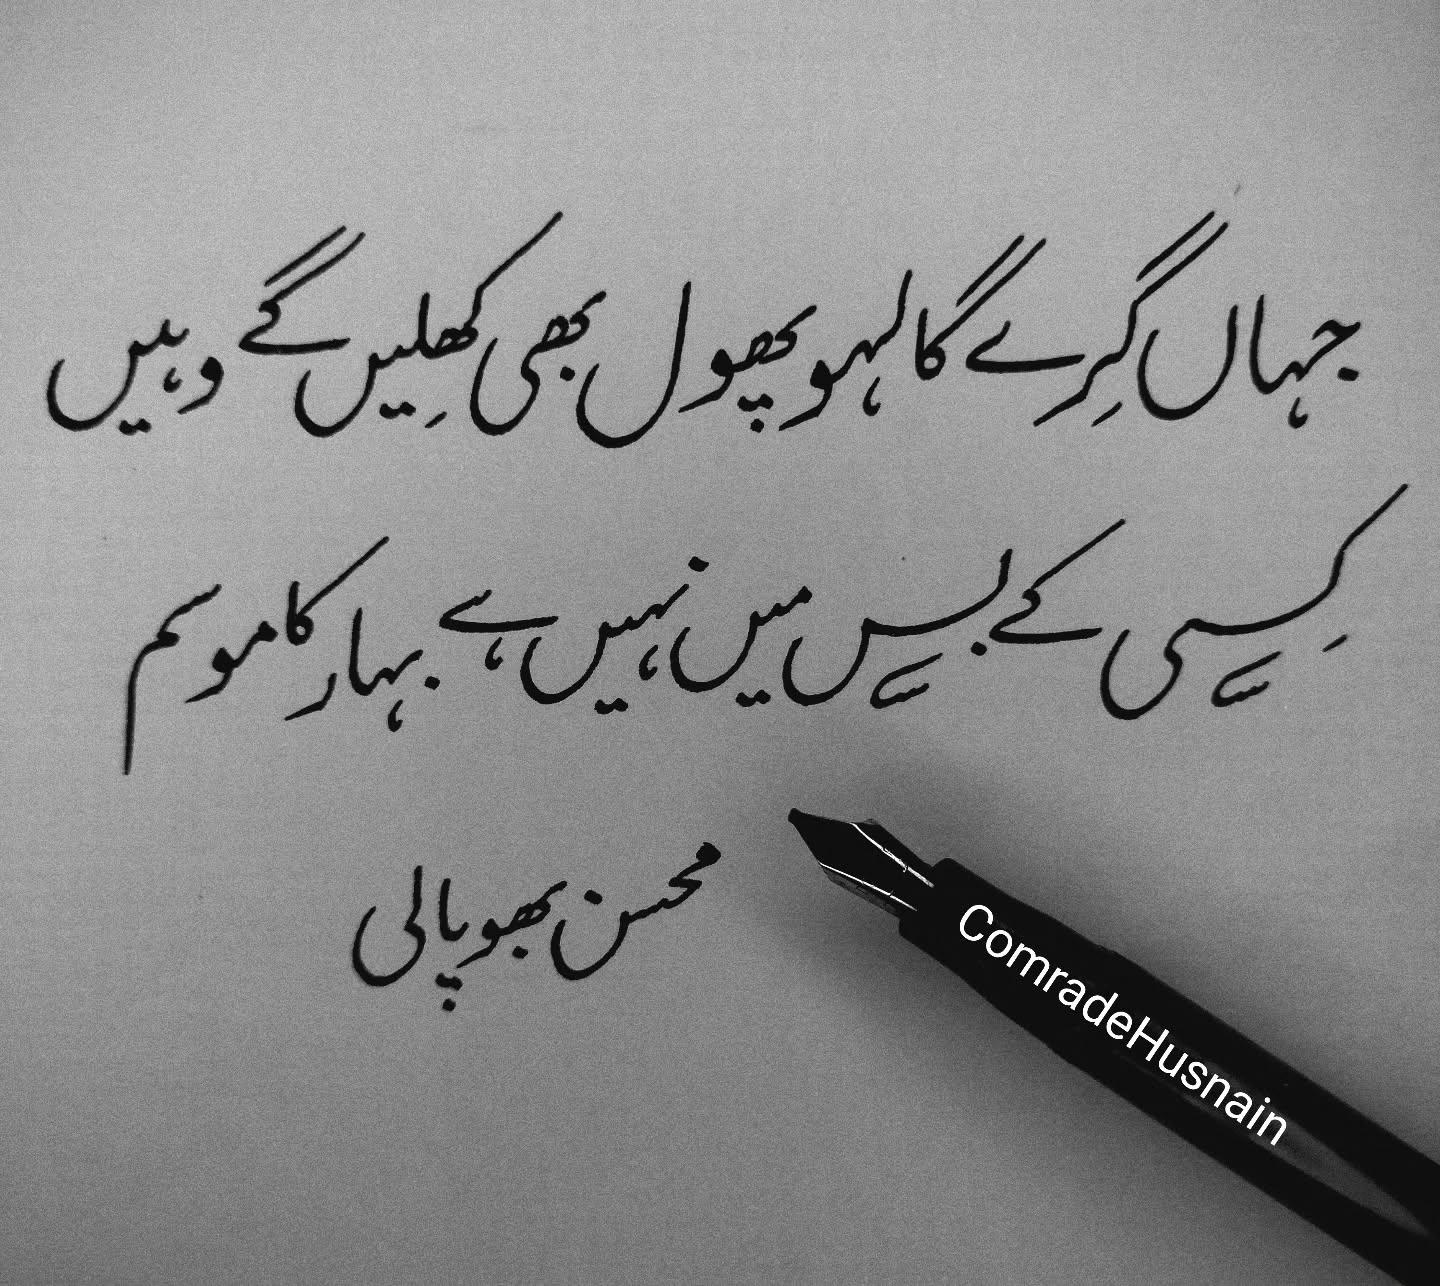 جہاں گِرے گا لہو پھول بھی کھِلیں گے وہیں
کِسی کے بس میں نہیں ہے بہار کا موسم
محسن بھوپالی
ComradeHusnain